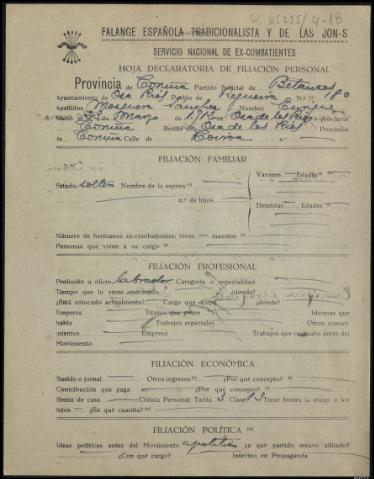 65255/4-18
FALANGE ESPAÑOLA TRADICIONALISTA Y DE LAS JON-S
SERVICIO NACIONAL DE EX-COMBATIENTES
HOJA DECLARATORIA DE FILIACIÓN PERSONAL
Provincia de Coruña Partido Judicial de Betanzos
Ayuntamiento de Oza Rios Pueblo de Regueira N.º 180
Apellidos Mosquera Sanchez Nombre Enrique
Marzo de 1912 en Oza de los Rios provincia
Coruña Reside en Oza de los Rios Provincia
de Coruña Calle de n.º
FILIACIÓN FAMILIAR
Estado soltero Nombre de la esposa
Varones Edades
n.º de hijos
Hembras Edades
Número de hermanos ex-combatientes, vivos muertos
Personas que viven a su cargo
FILIACIÓN PROFESIONAL
Profesión u oficio labrador Categoría o especialidad
Tiempo que lo viene ejerciendo ¿dónde?
¿Está colocado actualmente? Cargo que ocupa ¿dónde?
Empresa Títulos que posee Idiomas que
habla Trabajos especiales Otros conoci-
mientos Empresa Trabajos que realizaba antes del
Movimiento
FILIACIÓN ECONÓMICA
Sueldo o jornal Otros ingresos ¿Por qué concepto?
Contribución que paga ¿Por qué concepto?
Renta de casa Cédula Personal: Tarifa 3 Clase 13 Tiene bienes la mujer o los
hijos ¿En qué cuantía?
FILIACIÓN POLÍTICA
Ideas políticas antes del Movimiento apolítico ¿a qué partido estuvo afiliado?
¿Con qué cargo? Intervino en Propaganda